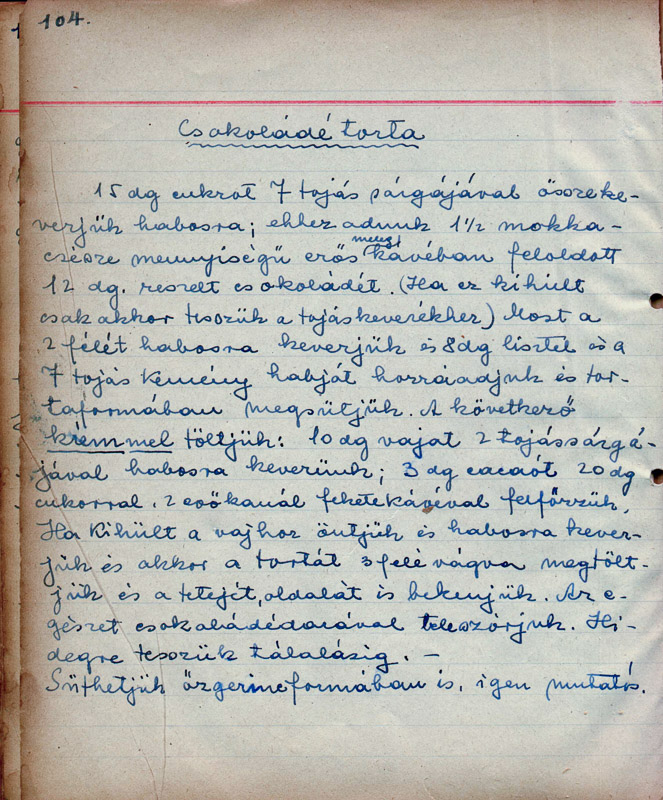 104.
Csokoládé torta
15 dg cukrot 7 tojás sárgájával összeke-
verjük habosra; ehhez adunk 1½ mokka-
meleg
csésze mennyiségű erős kávéban feloldott
12 dg. reszelt csokoládét. (Ha ez kihült
csak akkor teszük a tojáskeverékhez) Most a
2 félét habosra keverjük és 8dg lisztel és a
7 tojás kemény habját hozzáadjuk és tor-
taformában megsütjük. A következő
krémmel töltjük: 10 dg vajat 2 tojássárgá-
jával habosra keverünk; 3 dg cacaót 20 dg
cukorral, 2 evőkanál feketekávéval felfőzzük,
Ha kihült a vajhoz öntjük és habosra kever-
jük és akkor a tortát 3 felé vágva megtölt-
jük és a tetejét, oldalát is bekenjük. Az e-
gészet csokoládédarával teleszórjuk. Hi-
degre teszük tálalásig. –
Süthetjük őzgerincformában is, igen mutatós.